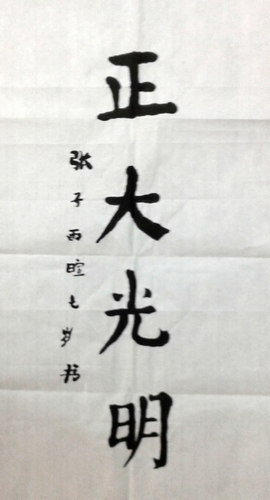 正大光明
张子雨暄七岁书